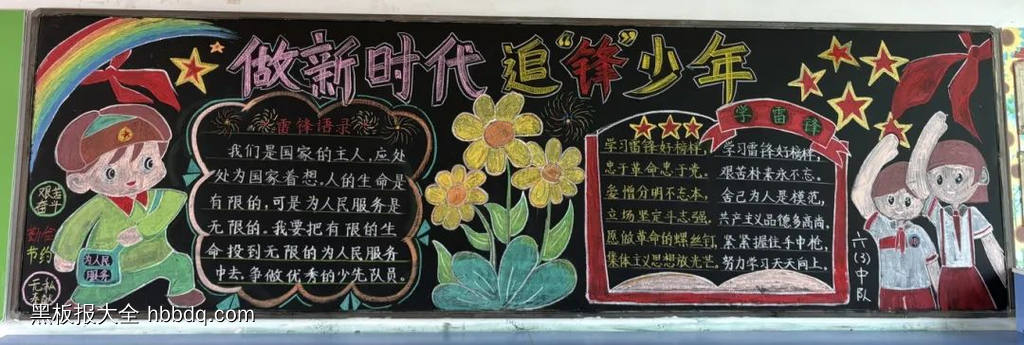 做新时代 追“锋”少年
雷锋语录
我们是国家的主人,应处
处为国家着想.人的生命是
有限的,可是为人民服务是
无限的.我要把有限的生
命投到无限的为人民服务
中去.争做优秀的少先队员。
学雷锋
学习雷锋好榜样,
忠于革命忠于党。
爱憎分明不忘本,
立场坚定斗志强,
愿做革命的螺丝钉,
集体主义思想放光芒。
学习雷锋好榜样,
艰苦朴素永不忘。
舍己为人是模范,
共产主义品德多高尚。
紧紧握住手中枪,
努力学习天天向上。
艰苦
奋斗
勤俭
节约
为人民
服务
无私
六(3)中队
黑板报大全 hbbdq.com